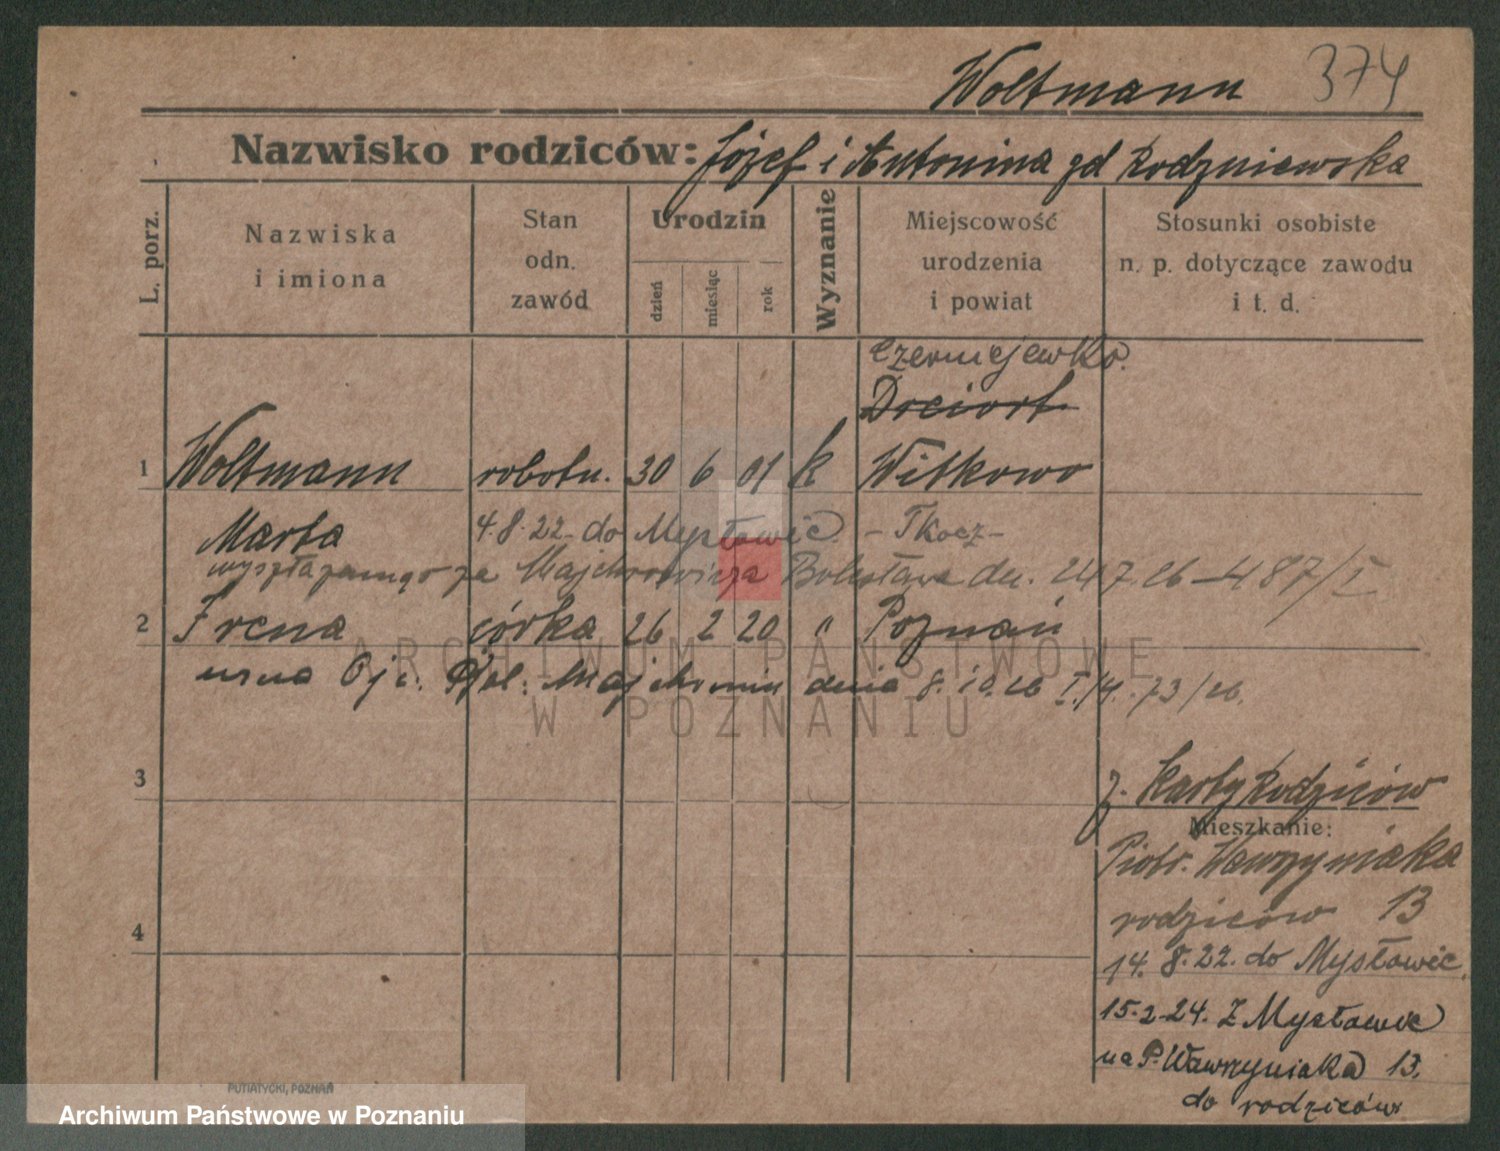 Woltmann 374
Nazwisko rodziców: Józef i Antonina gd Rodzniewska
L. porz.
Nazwiska i imiona
Stan odn. zawód
Urodzin
dzień miesiąc rok
Wyznanie
Miejscowość urodzenia i powiat
Stosunki osobiste n. p. dotyczące zawodu i t. d.
Czerniejewko.
1 Woltmann robotn. 30 6 01 k Witkowo
Marta 4.8.22 do Mysłowic - Tkocz -
wyszła zamąż za Majchrowicza Bolesława dn. 24 7.26 - 487/I
2 Irena córka 26 2 20 " Poznań
uzna Ojc. Bol. dnia 8.10.26 73/26.
3
z. Karty Rodziców
Mieszkanie:
Piotr. Wawrzyniaka
rodziców 13
4
14. 8. 22. do Mysłowic
15.2.24. Z Mysłowic
na P. Wawrzyniaka 13.
do rodziców
PUTIATYCKI, POZNAŃ
ARCHIWUM PAŃSTWOWE
W POZNANIU
Archiwum Państwowe w Poznaniu